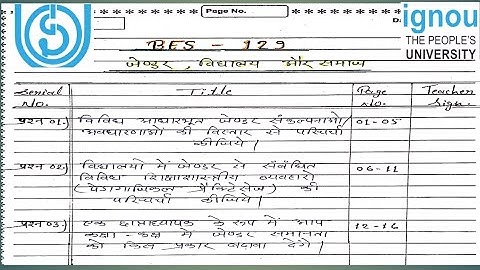 Page No.
D
ignou
THE PEOPLE'S
UNIVERSITY
BES - 129
जेण्डर, विद्यालय और समाज
Serial No. Title Page No. Teacher Sign.
प्रश्न 01.) विविध आधारभूत जेण्डर संकल्पनाओं/ 01-05
अवधारणाओं की विस्तार से परिचर्चा
कीजिये।
प्रश्न 02.) विद्यालयों में जेण्डर से संबंधित 06-11
विविध शिक्षाशास्त्रीय व्यवहारों
(पेडागाजिकल प्रैक्टिसेज) की
परिचर्चा कीजिये।
प्रश्न 03.) एक छात्राध्यापक के रूप में आप 12-16
कक्षा-कक्ष में जेण्डर समानता
को किस प्रकार बढ़ावा देंगे।